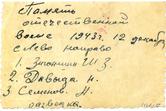 Память
отечественной
войне 1943г. 12 декабр
слево направо
1. Загоняшин Ш. З.
2. Давыда н.
3 Семенов. Н.
разведка.